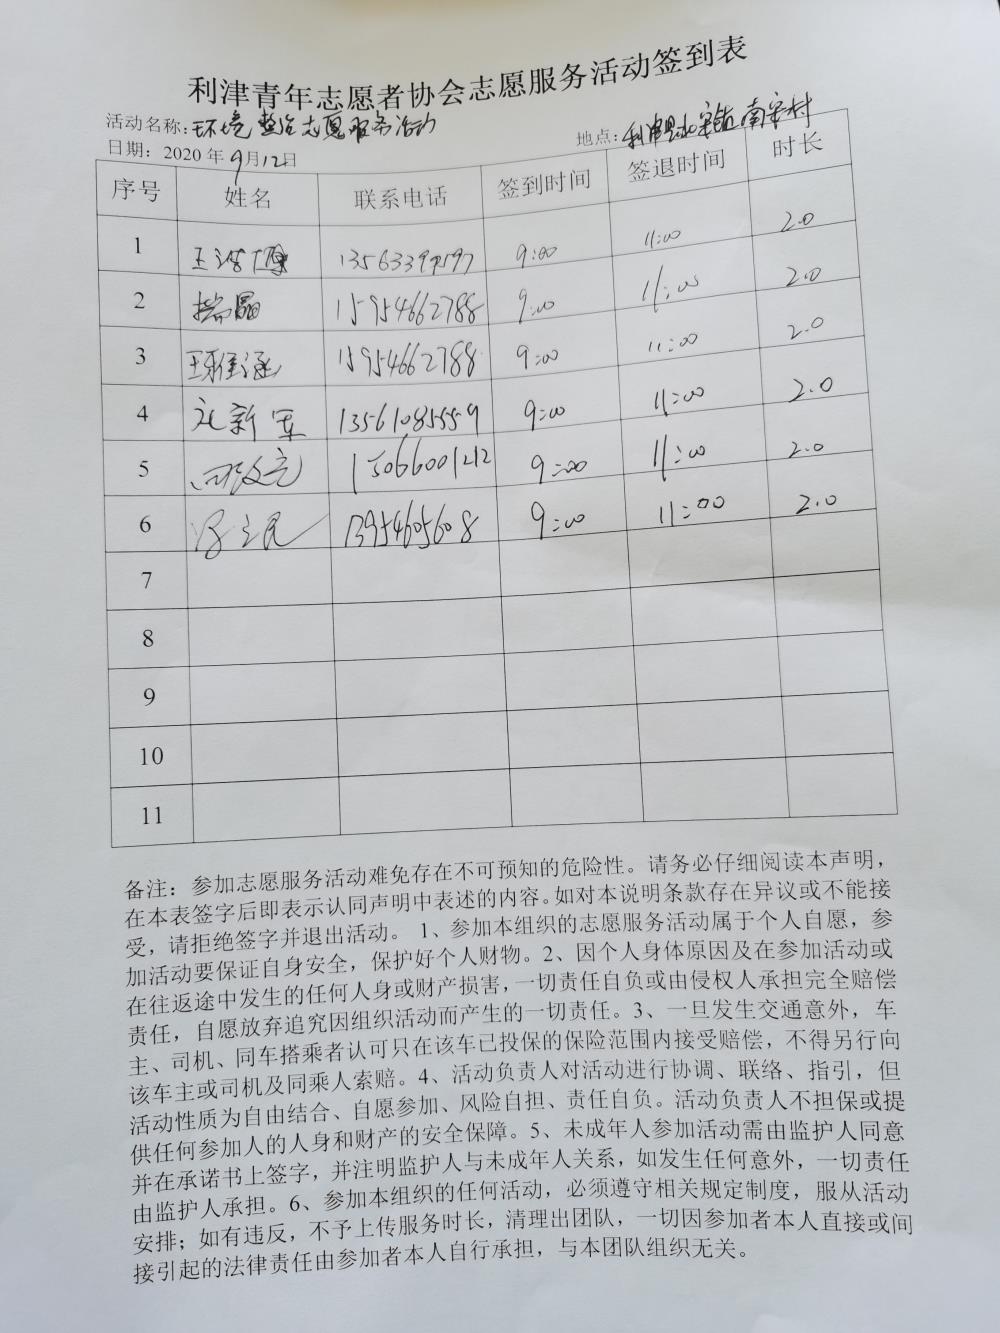 利津青年志愿者协会志愿服务活动签到表
活动名称:环境整治志愿服务活动 地点:利津县北宋镇南宋村
日期: 2020年9月12日
序号 姓名 联系电话 签到时间 签退时间 时长
1 13563399597 9:00 11:00 2.0
2 15954662788 9:00 11:00 2.0
3 15954662788 9:00 11:00 2.0
4 新军 13561085559 9:00 11:00 2.0
5 15066001212 9:00 11:00 2.0
6 13954605608 9:00 11:00 2.0
7
8
9
10
11
备注：参加志愿服务活动难免存在不可预知的危险性。请务必仔细阅读本声明，
在本表签字后即表示认同声明中表述的内容。如对本说明条款存在异议或不能接
受，请拒绝签字并退出活动。 1、参加本组织的志愿服务活动属于个人自愿，参
加活动要保证自身安全，保护好个人财物。2、因个人身体原因及在参加活动或
在往返途中发生的任何人身或财产损害，一切责任自负或由侵权人承担完全赔偿
责任，自愿放弃追究因组织活动而产生的一切责任。3、一旦发生交通意外，车
主、司机、同车搭乘者认可只在该车已投保的保险范围内接受赔偿，不得另行向
该车主或司机及同乘人索赔。4、活动负责人对活动进行协调、联络、指引，但
活动性质为自由结合、自愿参加、风险自担、责任自负。活动负责人不担保或提
供任何参加人的人身和财产的安全保障。5、未成年人参加活动需由监护人同意
并在承诺书上签字，并注明监护人与未成年人关系，如发生任何意外，一切责任
由监护人承担。6、参加本组织的任何活动，必须遵守相关规定制度，服从活动
安排；如有违反，不予上传服务时长，清理出团队，一切因参加者本人直接或间
接引起的法律责任由参加者本人自行承担，与本团队组织无关。